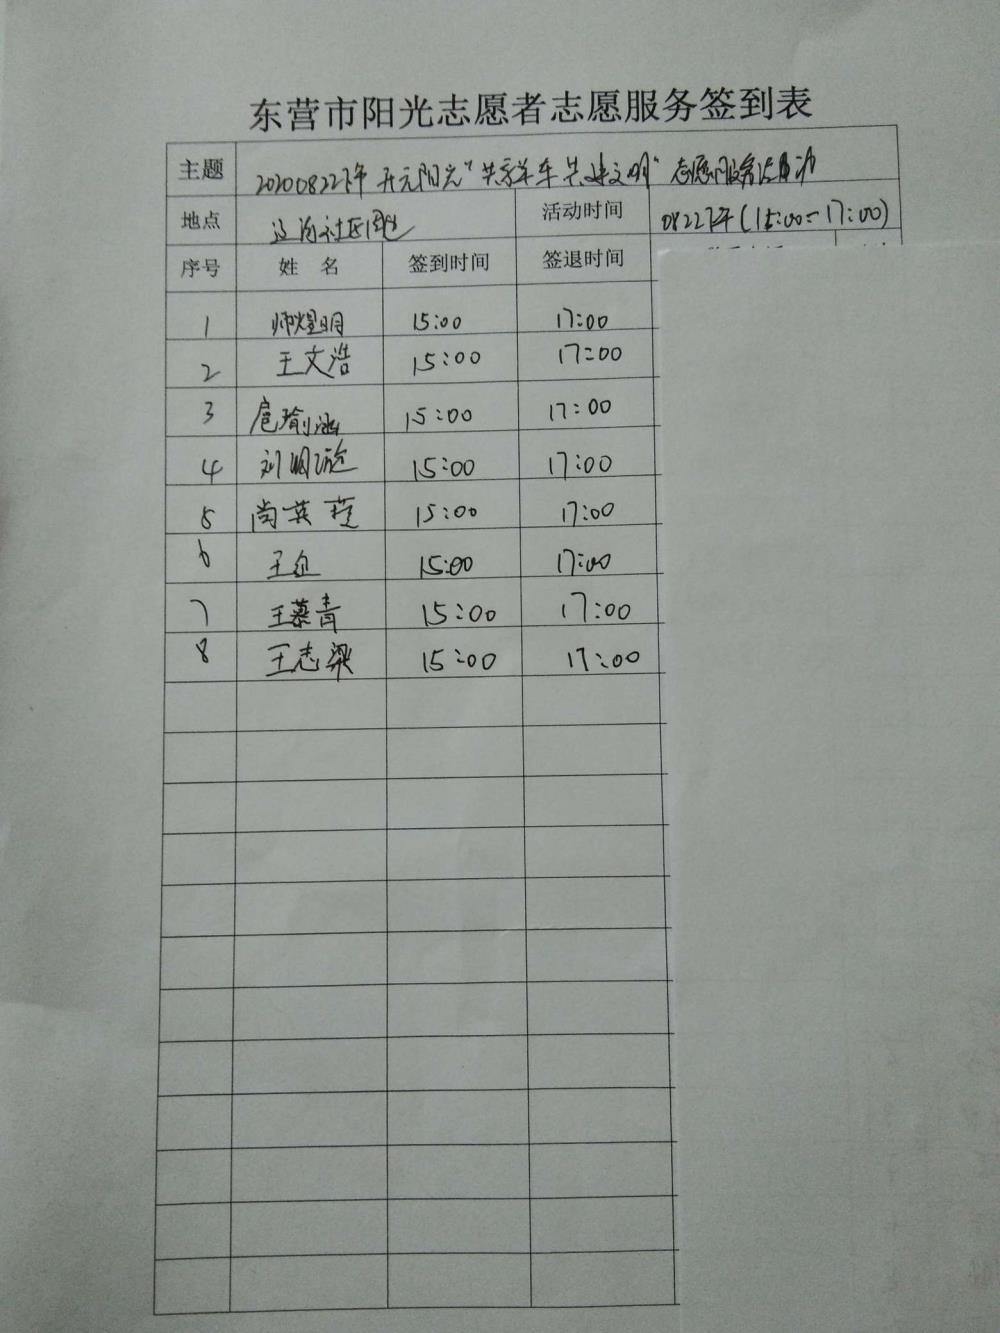 东营市阳光志愿者志愿服务签到表
主题 20200822下午 开元阳光“共享单车 共建文明”志愿服务活动
地点 社区周边 活动时间 0822下午(15:00-17:00)
序号 姓 名 签到时间 签退时间
1 师煜明 15:00 17:00
2 王文浩 15:00 17:00
3 扈瑜涵 15:00 17:00
4 刘明 15:00 17:00
5 尚英 15:00 17:00
6 王 15:00 17:00
7 王慕青 15:00 17:00
8 王志梁 15:00 17:00